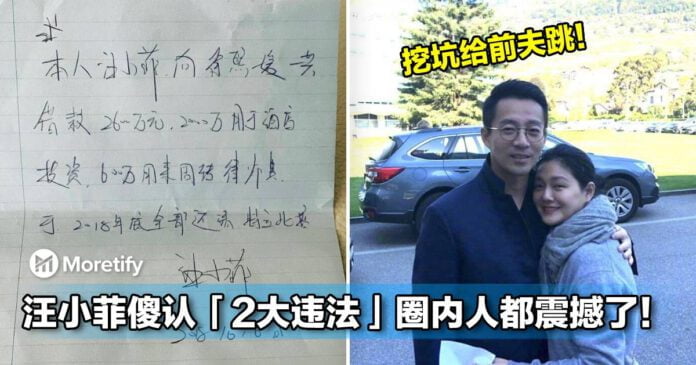 本人汪小菲.向徐熙媛共
借款2600万元.2000万用于酒店
投资.600万用来周转
于2018年底全部还清 特立此据
汪小菲
挖坑给前夫跳!
Moretify
汪小菲傻认「2大违法」圈内人都震撼了!